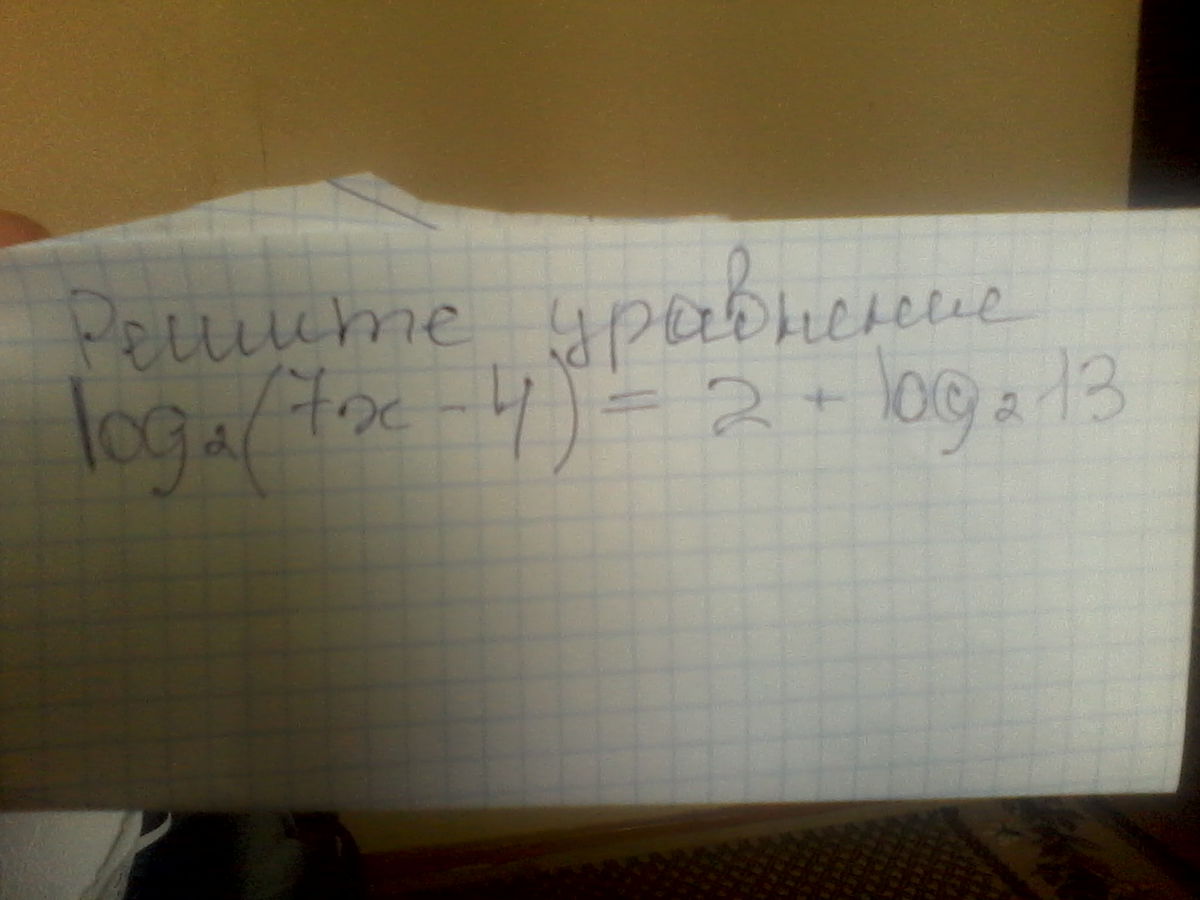 Решите уравнение
log₂(7x - 4) = 2 + log₂13